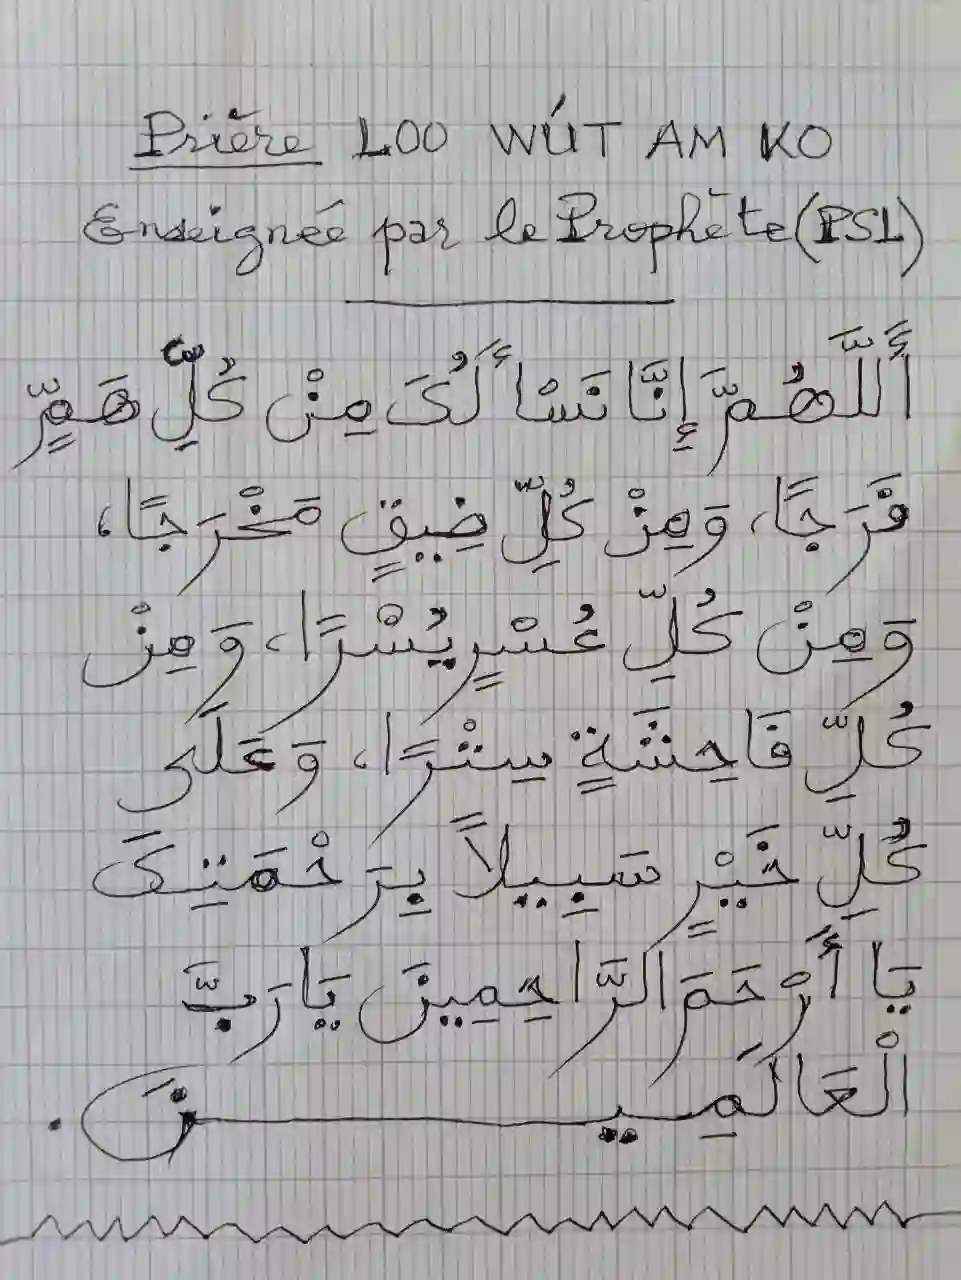 Prière LOO WÚT AM KO
Enseignée par le Prophète (PSL)
أَللَّهُمَّ إِنَّا نَسْأَلُكَ مِنْ كُلِّ هَمٍّ
فَرَجًا، وَمِنْ كُلِّ ضِيقٍ مَخْرَجًا،
وَمِنْ كُلِّ عُسْرٍ يُسْرًا، وَمِنْ
كُلِّ فَاحِشَةٍ سِتْرًا، وَعَلَى
كُلِّ خَيْرٍ سَبِيلاً بِرَحْمَتِكَ
يَا أَرْحَمَ الرَّاحِمِينَ يَا رَبَّ
الْعَالَمِيـــــنَ.